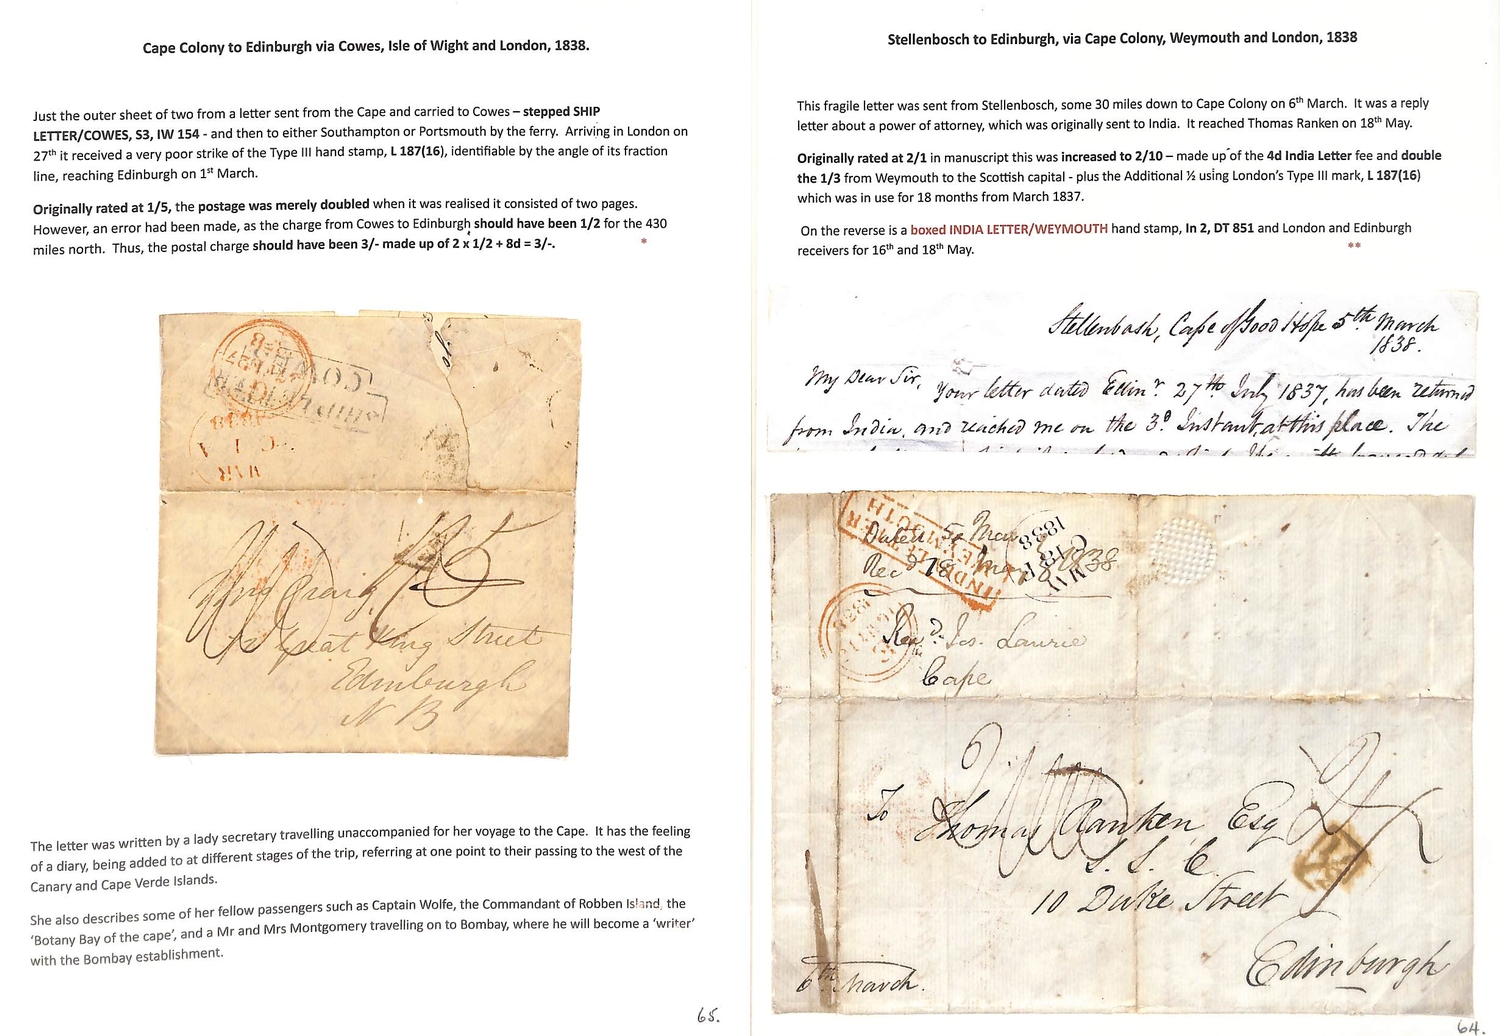 Cape Colony to Edinburgh via Cowes, Isle of Wight and London, 1838.
Just the outer sheet of two from a letter sent from the Cape and carried to Cowes – stepped SHIP
LETTER/COWES, S3, IW 154 - and then to either Southampton or Portsmouth by the ferry. Arriving in London on
27th it received a very poor strike of the Type III hand stamp, L 187(16), identifiable by the angle of its fraction
line, reaching Edinburgh on 1st March.
Originally rated at 1/5, the postage was merely doubled when it was realised it consisted of two pages.
However, an error had been made, as the charge from Cowes to Edinburgh should have been 1/2 for the 430
miles north. Thus, the postal charge should have been 3/- made up of 2 x 1/2 + 8d = 3/-.
*
COWES
SHIP LETTER
1838
MAR
Craig
Great King Street
Edinburgh
N B
The letter was written by a lady secretary travelling unaccompanied for her voyage to the Cape. It has the feeling
of a diary, being added to at different stages of the trip, referring at one point to their passing to the west of the
Canary and Cape Verde Islands.
She also describes some of her fellow passengers such as Captain Wolfe, the Commandant of Robben Island, the
'Botany Bay of the cape', and a Mr and Mrs Montgomery travelling on to Bombay, where he will become a 'writer'
with the Bombay establishment.
65.
Stellenbosch to Edinburgh, via Cape Colony, Weymouth and London, 1838
This fragile letter was sent from Stellenbosch, some 30 miles down to Cape Colony on 6th March. It was a reply
letter about a power of attorney, which was originally sent to India. It reached Thomas Ranken on 18th May.
Originally rated at 2/1 in manuscript this was increased to 2/10 – made up of the 4d India Letter fee and double
the 1/3 from Weymouth to the Scottish capital - plus the Additional ½ using London's Type III mark, L 187(16)
which was in use for 18 months from March 1837.
On the reverse is a boxed INDIA LETTER/WEYMOUTH hand stamp, In 2, DT 851 and London and Edinburgh
receivers for 16th and 18th May.
**
Stellenbosh, Cape of Good Hope 5th March
1838.
My Dear Sir, Your letter dated Edinr. 27th July 1837, has been returned
from India, and reached me on the 3d Instant, at this place. The
INDIA LETTER
WEYMOUTH
Dated 5 Mar
Recd 18 May 1838
MAY
1838
Revd. Jos. Laurie
Cape
To Thomas Ranken Esq
S. S. C.
10 Duke Street
Edinburgh
6th March.
64.